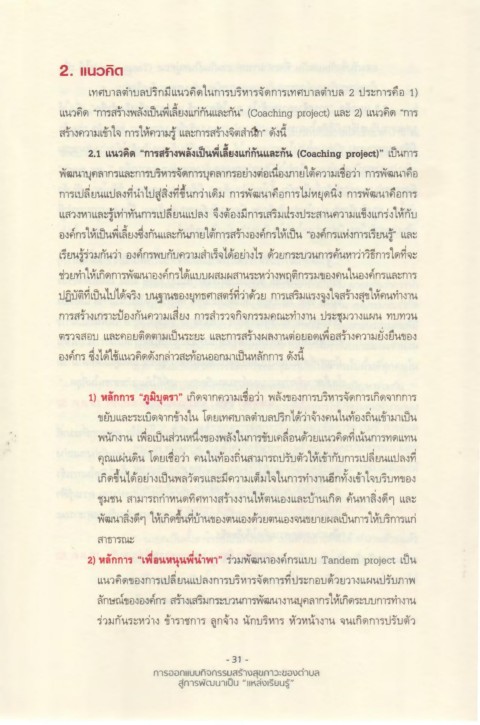 2. แนวคิด
เทศบาลตำบลปริกมีแนวคิดในการบริหารจัดการเทศบาลตำบล 2 ประการคือ 1)
แนวคิด "การสร้างพลังเป็นพี่เลี้ยงแก่กันและกัน" (Coaching project) และ 2) แนวคิด "การ
สร้างความเข้าใจ การให้ความรู้ และการสร้างจิตสำนึก" ดังนี้
2.1 แนวคิด "การสร้างพลังเป็นพี่เลี้ยงแก่กันและกัน (Coaching project)" เป็นการ
พัฒนาบุคลากรและการบริหารจัดการบุคลากรอย่างต่อเนื่องภายใต้ความเชื่อว่า การพัฒนาคือ
การเปลี่ยนแปลงที่นำไปสู่สิ่งที่ขึ้นกว่าเดิม การพัฒนาคือการไม่หยุดนิ่ง การพัฒนาคือการ
แสวงหาและรู้เท่าทันการเปลี่ยนแปลง จึงต้องมีการเสริมแรงประสานความแข็งแกร่งให้กับ
องค์กรให้เป็นพี่เลี้ยงซึ่งกันและกันภายใต้การสร้างองค์กรให้เป็น "องค์กรแห่งการเรียนรู้" และ
เรียนรู้ร่วมกันว่า องค์กรพบกับความสำเร็จได้อย่างไร ด้วยกระบวนการค้นหาว่าวิธีการใดที่จะ
ช่วยทำให้เกิดการพัฒนาองค์กรได้แบบผสมผสานระหว่างพฤติกรรมของคนในองค์กรและการ
ปฏิบัติที่เป็นไปได้จริง บนฐานของยุทธศาสตร์ที่ว่าด้วย การเสริมแรงจูงใจสร้างสุขให้คนทำงาน
การสร้างเกราะป้องกันความเสี่ยง การสำรวจกิจกรรมคณะทำงาน ประชุมวางแผน ทบทวน
ตรวจสอบ และคอยติดตามเป็นระยะ และการสร้างผลงานต่อยอดเพื่อสร้างความยั่งยืนของ
องค์กร ซึ่งได้ใช้แนวคิดดังกล่าวสะท้อนออกมาเป็นหลักการ ดังนี้
1) หลักการ "ภูมิบุตรา" เกิดจากความเชื่อว่า พลังของการบริหารจัดการเกิดจากการ
ขยับและระเบิดจากข้างใน โดยเทศบาลตำบลปริกได้ว่าจ้างคนในท้องถิ่นเข้ามาเป็น
พนักงาน เพื่อเป็นส่วนหนึ่งของพลังในการขับเคลื่อนด้วยแนวคิดที่เน้นการทดแทน
คุณแผ่นดิน โดยเชื่อว่า คนในท้องถิ่นสามารถปรับตัวให้เข้ากับการเปลี่ยนแปลงที่
เกิดขึ้นได้อย่างเป็นพลวัตรและมีความเต็มใจในการทำงานอีกทั้งเข้าใจบริบทของ
ชุมชน สามารถกำหนดทิศทางสร้างงานให้ตนเองและบ้านเกิด ค้นหาสิ่งดีๆ และ
พัฒนาสิ่งดีๆ ให้เกิดขึ้นที่บ้านของตนเองด้วยตนเองจนขยายผลเป็นการให้บริการแก่
สาธารณะ
2) หลักการ "เพื่อนหนุนพี่นำพา" ร่วมพัฒนาองค์กรแบบ Tandem project เป็น
แนวคิดของการเปลี่ยนแปลงการบริหารจัดการที่ประกอบด้วยวางแผนปรับภาพ
ลักษณ์ขององค์กร สร้างเสริมกระบวนการพัฒนางานบุคลากรให้เกิดระบบการทำงาน
ร่วมกันระหว่าง ข้าราชการ ลูกจ้าง นักบริหาร หัวหน้างาน จนเกิดการปรับตัว
- 31 -
การออกแบบกิจกรรมสร้างสุขภาวะของตำบล
สู่การพัฒนาเป็น "แหล่งเรียนรู้"